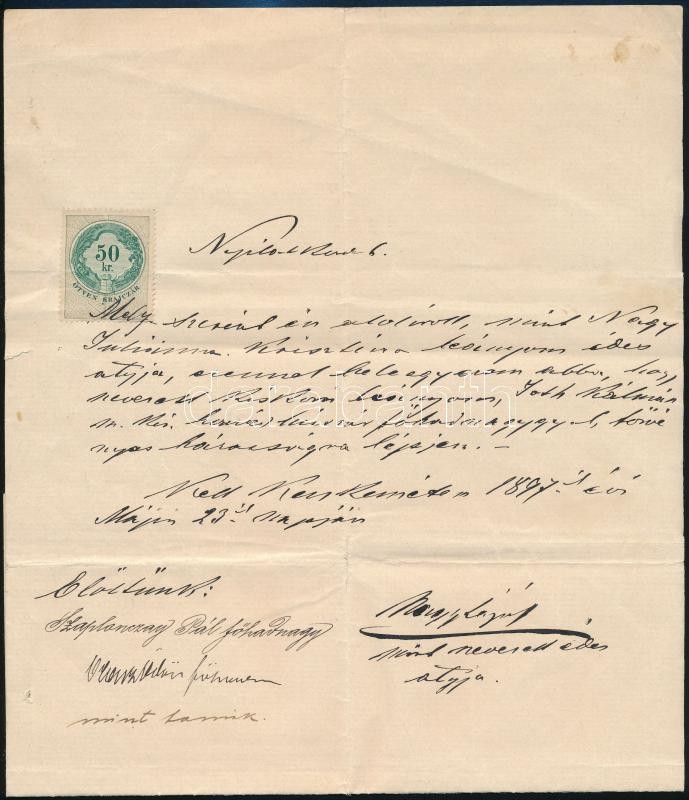 Nyilatkozat.
50
kr.
ÖTVEN KRAJCZÁR
Mely szerint én alulírott, mint Nagy
Juliánna Krisztina leányom édes
atyja, ezennel beleegyezem abba, hogy
nevezett kiskorú leányom, Tóth Kálmán
m. kir. honvéd huszár főhadnagygyal, törvé
nyes házasságra lépjen. –
Kelt Kecskeméten 1897 ik évi
Május 23 ik napján
Előttünk:
Szaplonczay Pál főhadnagy
mint tanúk.
Nagy Lajos
mint nevezett édes
atyja.
darabanth